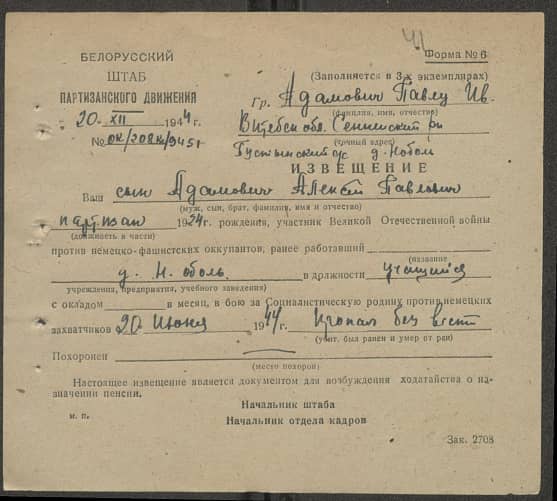 41
БЕЛОРУССКИЙ
ШТАБ
ПАРТИЗАНСКОГО ДВИЖЕНИЯ
20 XII 1944 г.
Форма № 6
(Заполняется в 3-х экземплярах)
Гр. Адамович Павлу Ив.
(фамилия, имя, отчество)
Витебск обл. Сеннинский рн
(точный адрес)
Пустынский с/с д.
ИЗВЕЩЕНИЕ
Ваш сын Адамович Алексей Павлович
(муж, сын, брат, фамилия, имя и отчество)
партизан 1924 г. рождения, участник Великой Отечественной войны
(должность в части)
против немецко-фашистских оккупантов, ранее работавший
(название
д. Н. оболь в должности учащийся
учреждения, предприятия, учебного заведения)
с окладом в месяц, в бою за Социалистическую родину против немецких
захватчиков 20 Июня 1944 г. пропал без вести
(убит, был ранен и умер от ран)
Похоронен
(место похорон)
Настоящее извещение является документом для возбуждения ходатайства о на-
значении пенсии.
Начальник штаба
м. п.
Начальник отдела кадров
Зак. 2708